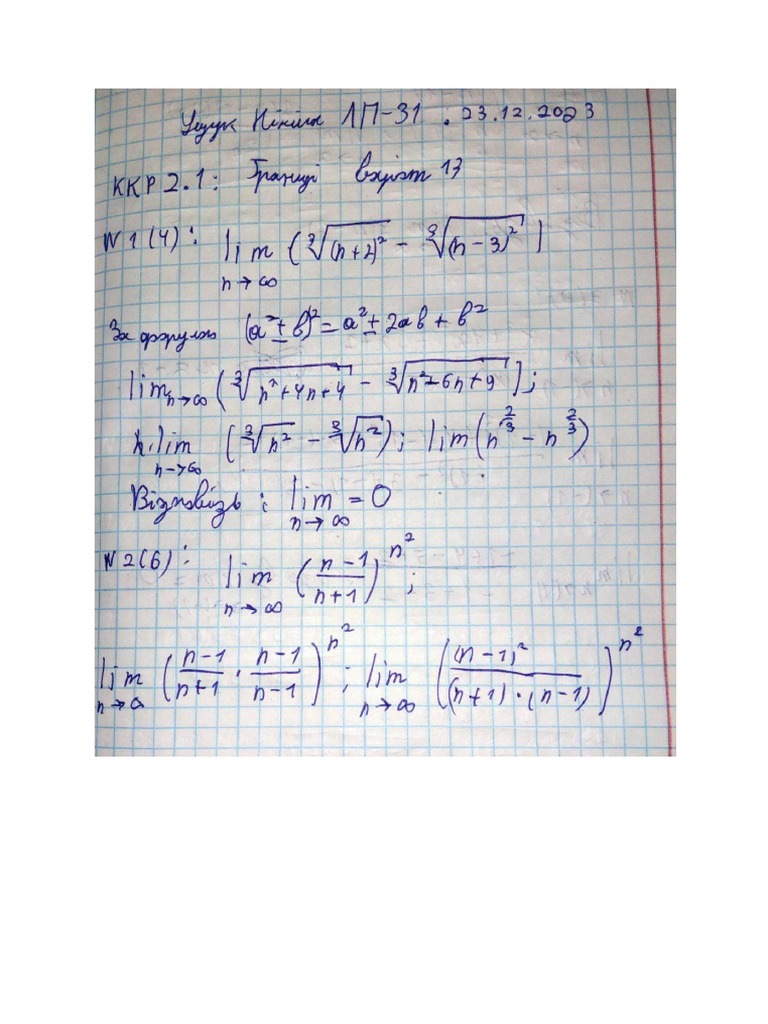 ЛП-31. 23.12.2023
ККР 2.1: Границі варіант 13
N1(4): lim n→∞ (∛(n+2)² - ∛(n-3)²)
За формулою (a²±b)² = a²±2ab+b²
lim n→∞ (∛n²+4n+4 - ∛n²-6n+9);
lim n→∞ (∛n² - ∛n²); lim(n^(2/3) - n^(2/3))
Відповідь: lim n→∞ = 0
N2(6): lim n→∞ ((n-1)/(n+1))^n²;
lim n→∞ ((n-1)/(n+1) · (n-1)/(n-1))^n²; lim n→∞ ((n-1)²/((n+1)·(n-1)))^n²